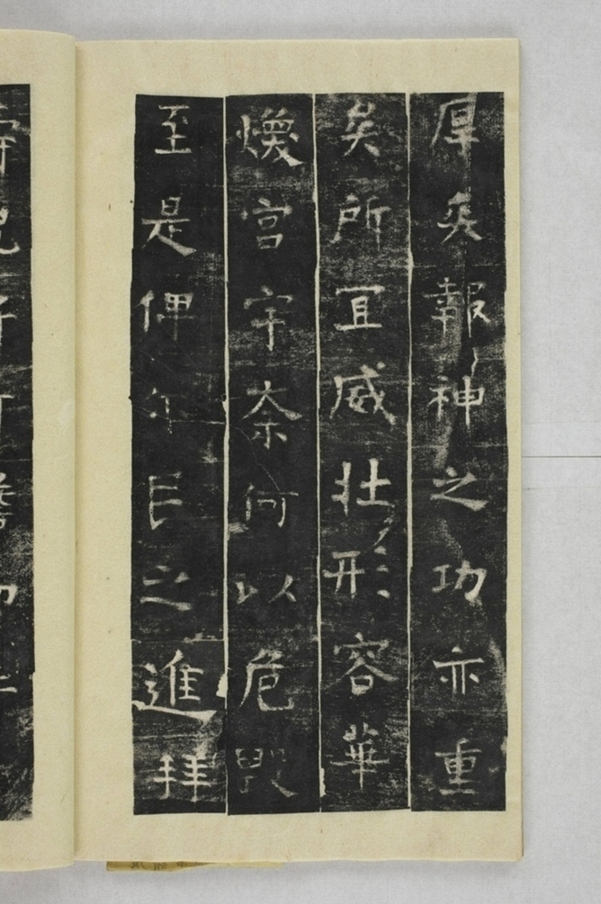 厚矣報神之功亦重
矣所冝威壮形容華
煥宫宇奈何以危毁
至是俾之進拜